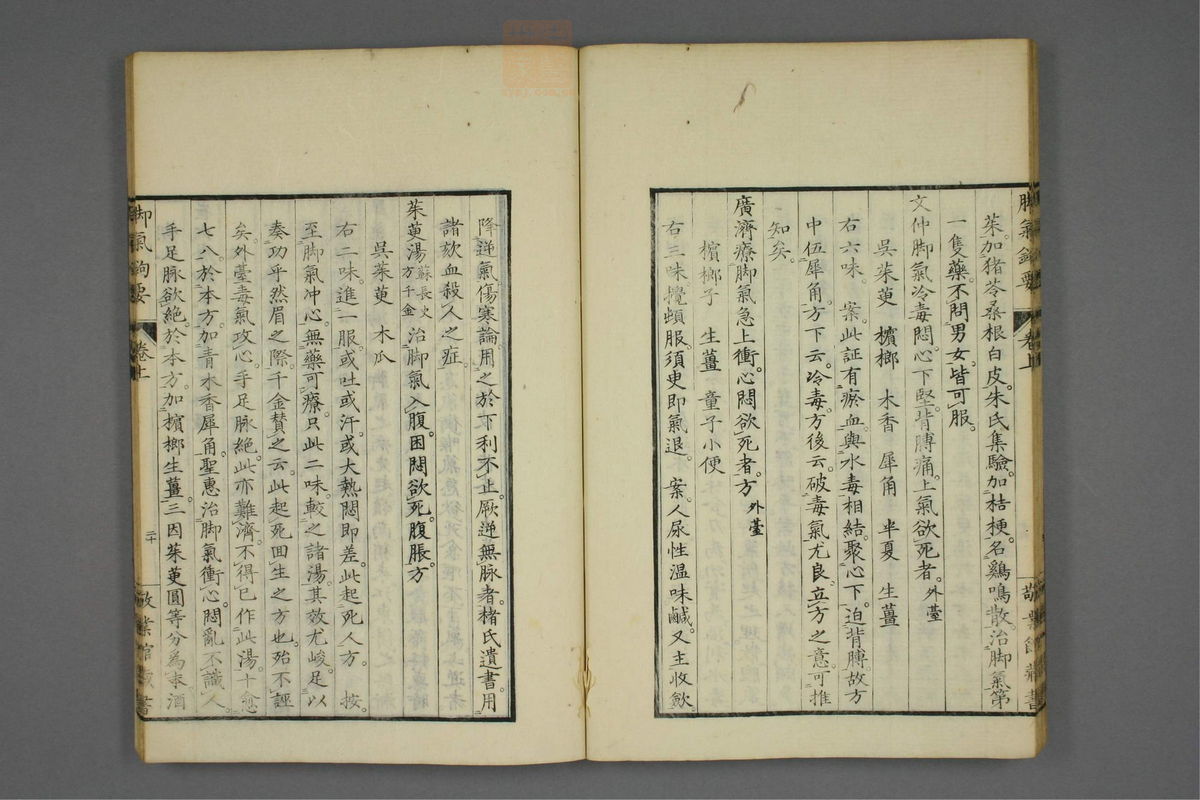 茱加猪苓桑根白皮朱氏集驗加桔梗名雞鳴散治脚氣第
一隻藥不問男女皆可服
文仲脚氣冷毒悶心下堅背膊痛上氣欲死者外臺
吳茱萸 檳榔 木香 犀角 半夏 生薑
右六味 案此証有瘀血與水毒相結聚心下迫背膊故方
中伍犀角方下云冷毒方後云破毒氣尤良立方之意可推
知矣
廣濟療脚氣急上衝心悶欲死者方 外臺
檳榔子 生薑 童子小便
右三味攪頓服須臾即氣退 案人尿性溫味鹹又主收斂
脚氣鉤要 卷上
降逆氣傷寒論用之於下利不止厥逆無脉者褚氏遺書用
諸欬血殺人之症
茱萸湯 蘇長史方千金 治脚氣入腹困悶欲死腹脹方
吳茱萸 木瓜
右二味進一服或吐或汗或大熱悶即差此起死人方 按
至脚氣冲心無藥可療只此二味較之諸湯其效尤峻足以
奏功乎然眉之際千金賛之云此起死回生之方也殆不誣
矣外臺毒氣攻心手足脉絕此亦難濟不得已作此湯十愈
七八於本方加青木香犀角聖惠治脚氣衝心悶亂不識人
手足脉欲絕於本方加檳榔生薑三因茱萸圓等分為末酒
脚氣鉤要 卷上 二十